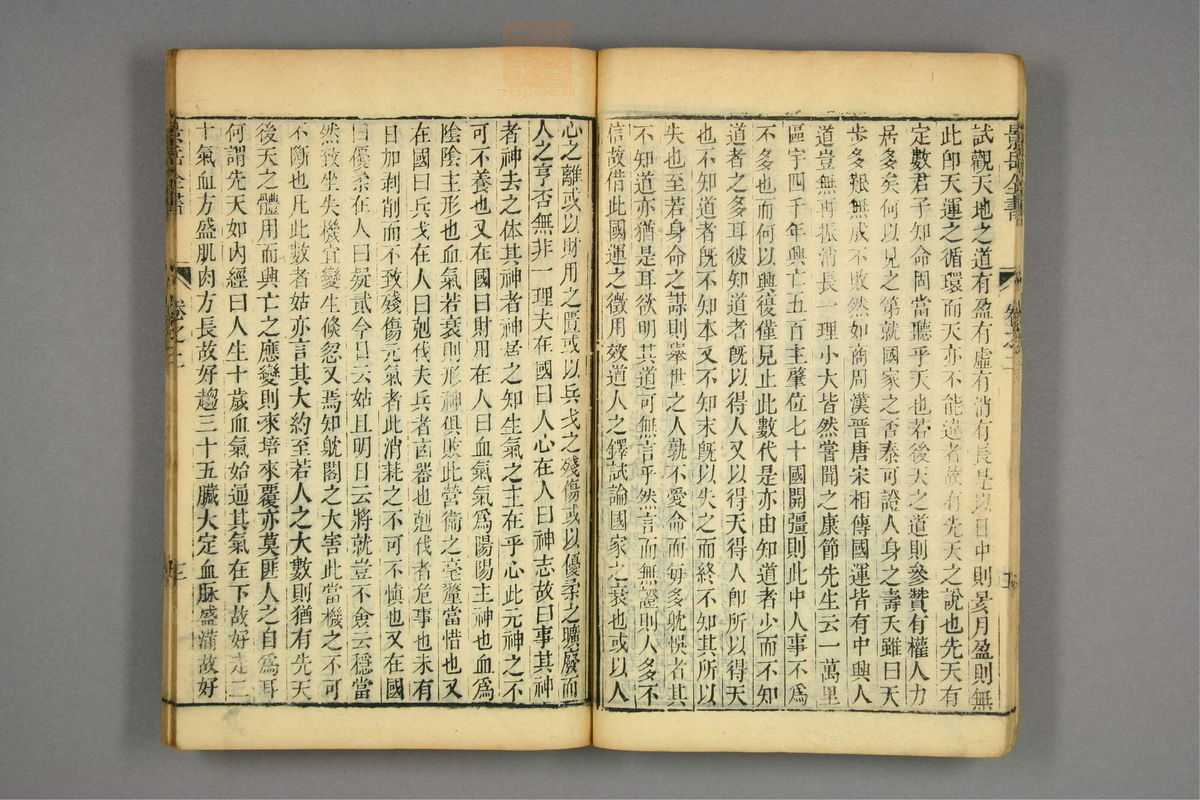 景岳全書
試觀天地之道有盈有虛有消有長是以日中則昃月盈則無
此卽天運之循環而天亦不能違者故有先天之說也先天有
定數君子知命固當聽乎天也若後天之道則參贊有權人力
居多矣何以見之第就國家之否泰可證人身之壽夭雖曰天
步多艱無成不敗然如商周漢晉唐宋相傳國運皆有中興人
道豈無再振消長一理小大皆然嘗聞之康節先生云一萬里
區宇四千年興亡五百主肇位七十國開彊則此中人事不爲
不多也而何以興復僅見止此數代是亦由知道者少而不知
道者之多耳彼知道者旣以得人又以得天得人卽所以得天
也不知道者旣不知本又不知末旣以失之而終不知其所以
失也至若身命之謀則舉世之人孰不愛命而每多耽悞者其
不知道亦猶是耳欲明其道可無言乎然言而無證則人多不
信故借此國運之徵用效道人之鐸試論國家之衰也或以人
心之離或以財用之匱或以兵戈之殘傷或以優柔之曠廢而
人之亨否無非一理夫在國曰人心在人曰神志故曰事其神
者神去之休其神者神居之知生氣之主在乎心此元神之不
可不養也又在國曰財用在人曰血氣氣爲陽陽主神也血爲
陰陰主形也血氣若衰則形神俱敗此營衛之毫釐當惜也又
在國曰兵戈在人曰剋伐夫兵者凶器也剋伐者危事也未有
日加剥削而不致殘傷元氣者此消耗之不可不慎也又在國
曰優柔在人曰疑貳今日云姑且明日云將就豈不僉云穩當
然致坐失機宜變生倏忽又焉知躭閣之大害此當機之不可
不斷也凡此數者姑亦言其大約至若人之大數則猶有先天
後天之體用而興亡之應變則來培來覆亦莫匪人之自爲耳
何謂先天如內經曰人生十歲血氣始通其氣在下故好走二
十氣血方盛肌肉方長故好趨三十五臟大定血脉盛滿故好
景岳全書
卷之二